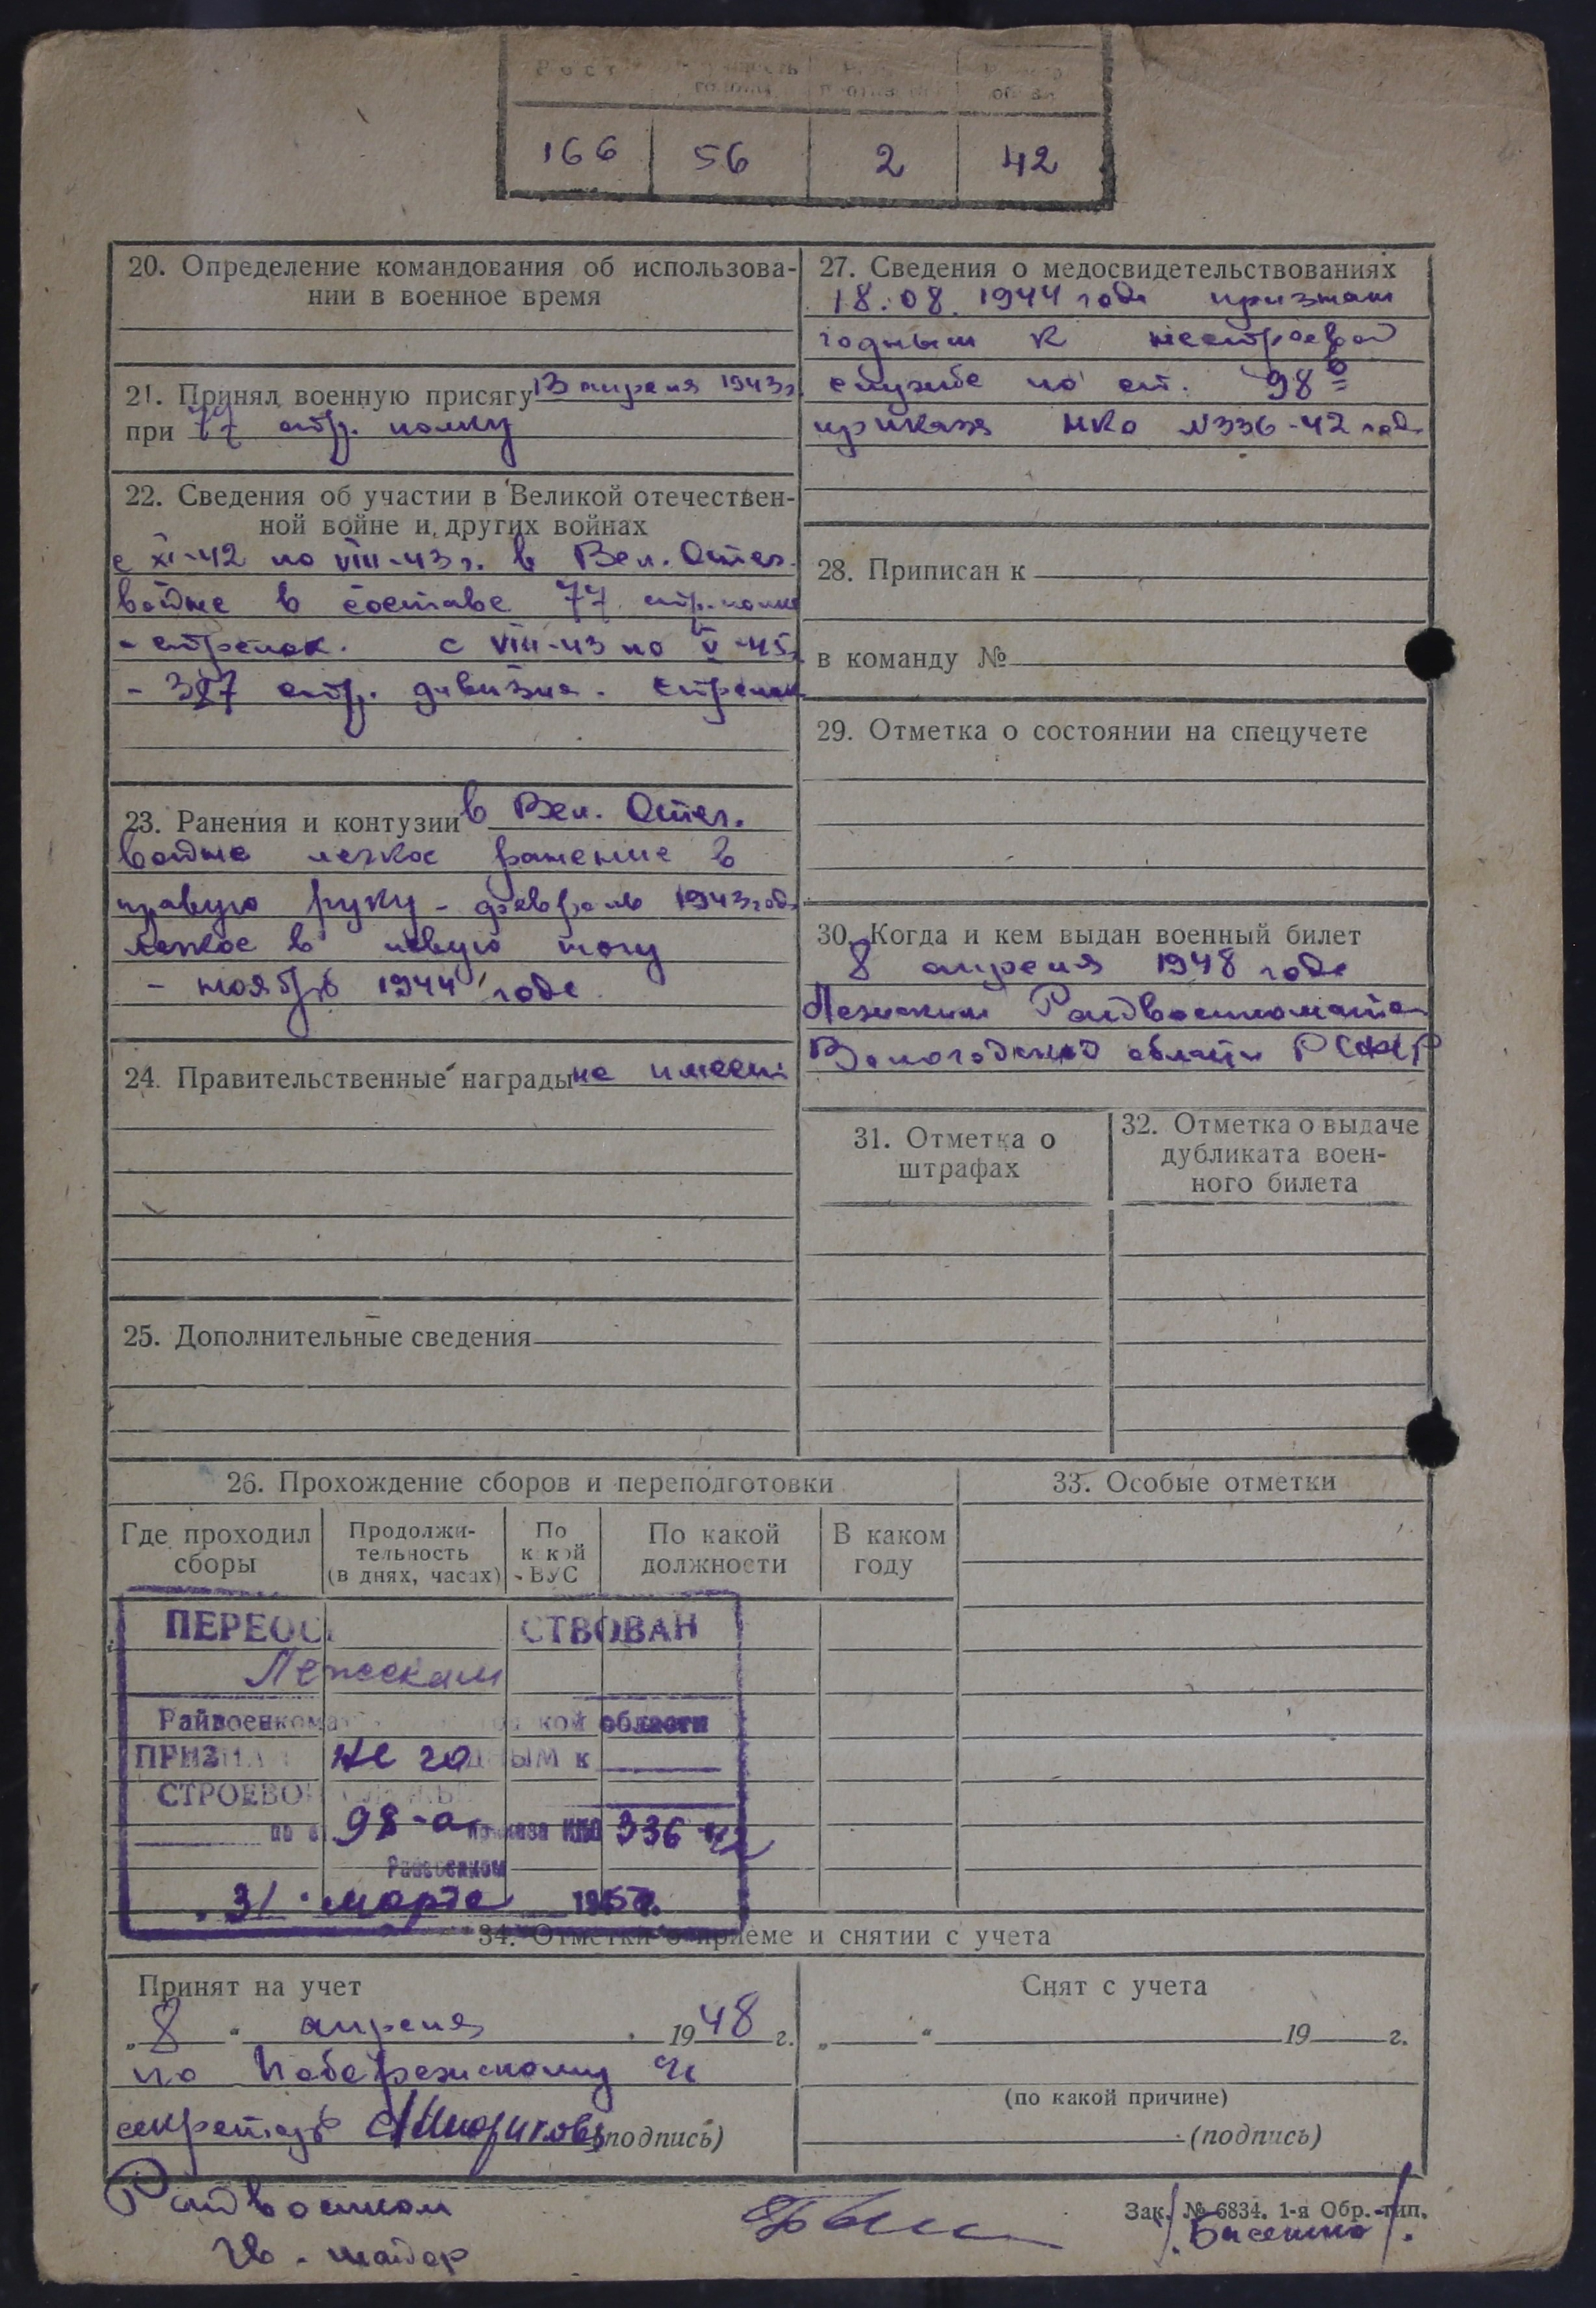 Рост
166 56 2 42
20. Определение командования об использова-
нии в военное время
21. Принял военную присягу 13 апреля 1943 г.
при 77 стр. полку
22. Сведения об участии в Великой отечествен-
ной войне и других войнах
с XI-42 по VIII-43 г. в Вел. Отеч.
войне в составе 77 стр. полка
- стрелок. с VIII-43 по V-45 г.
- 387 стр. дивизия. стрелок
23. Ранения и контузии в Вел. Отеч.
войне легкое ранение в
правую руку - февраль 1943 года
легкое в левую ногу
- ноябрь 1944 года
24. Правительственные награды не имеет
25. Дополнительные сведения
27. Сведения о медосвидетельствованиях
18.08.1944 года признан
годным к нестроевой
службе по ст. 98 б
приказа НКО №336-42 года
28. Приписан к
в команду №
29. Отметка о состоянии на спецучете
30. Когда и кем выдан военный билет
8 апреля 1948 года
Лежским Райвоенкоматом
Вологодской области РСФСР
31. Отметка о
штрафах
32. Отметка о выдаче
дубликата воен-
ного билета
26. Прохождение сборов и переподготовки
Где проходил
сборы
Продолжи-
тельность
(в днях, часах)
По
какой
ВУС
По какой
должности
В каком
году
33. Особые отметки
ПЕРЕОС СТВОВАН
Лежским
Райвоенкома кой области
ПРИЗНА не годным к
СТРОЕВО
98-а приказа НКО 336-42
Райвоенком
"31" марта 195 г.
34. Отметки о приеме и снятии с учета
Принят на учет
„8“ апреля 1948 г.
по Побережскому с/с
секретарь (подпись)
Снят с учета
„ “ 19 г.
(по какой причине)
(подпись)
Райвоенком
Гв. майор
Зак. № 6834. 1-я Обр. тип.